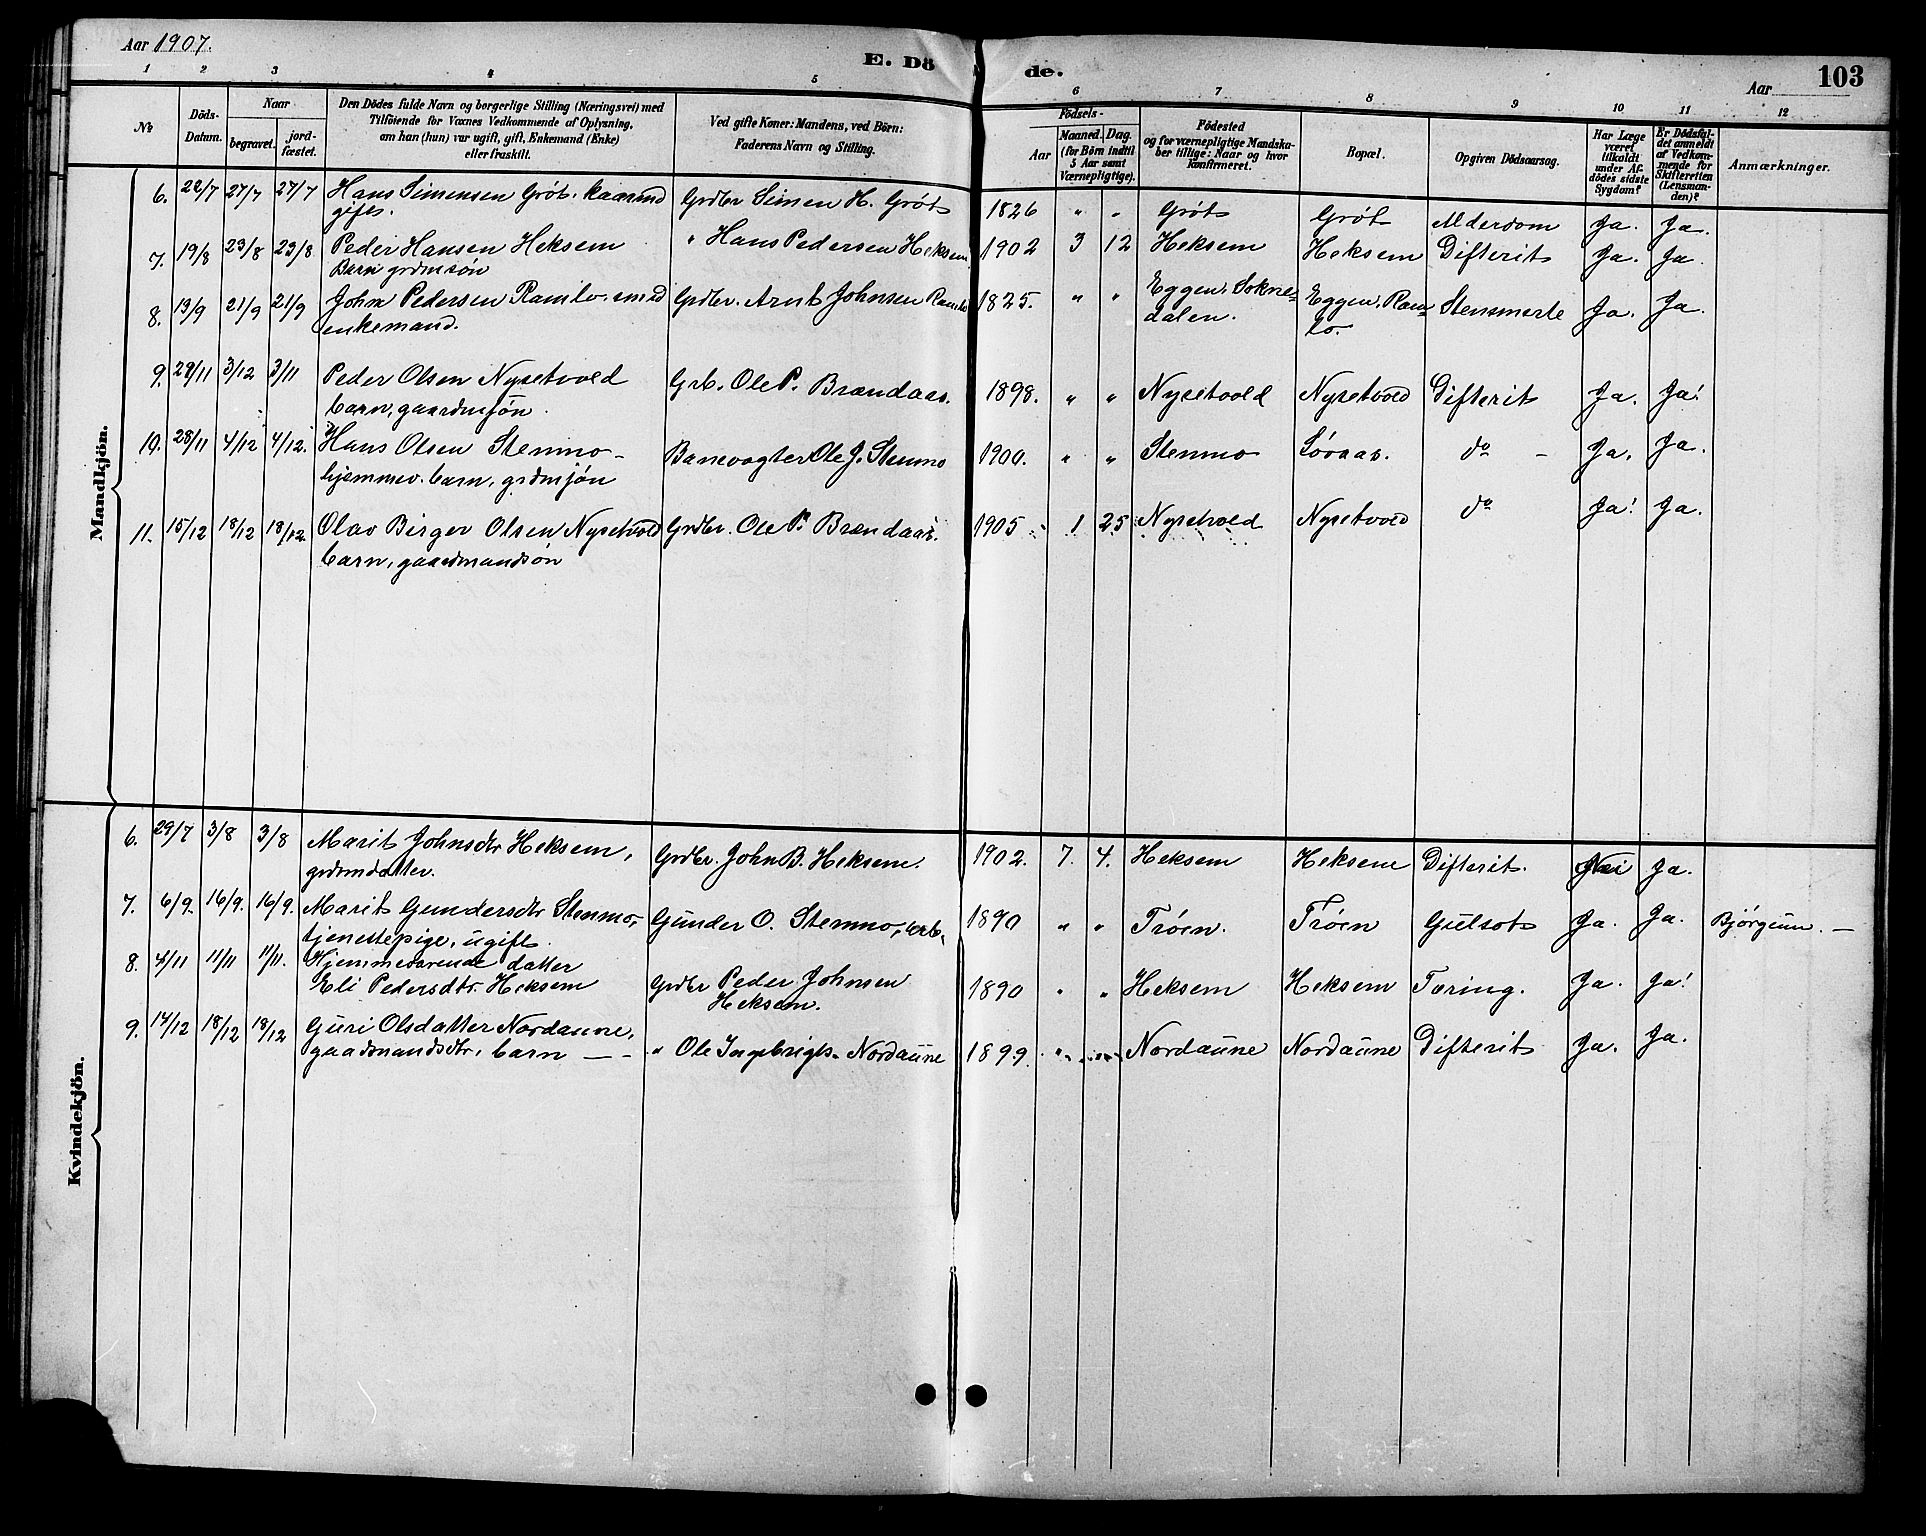 Aar 1907.
E. Dö de.
Aar 103
1 2 3 4 5 6 7 8 9 10 11 12
№
Döds-
Datum.
Naar
begravet.
jord-
fæstet.
Den Dödes fulde Navn og borgerlige Stilling (Næringsvei) med
Tilföiende for Voxnes Vedkommende af Oplysning,
om han (hun) var ugift, gift, Enkemand (Enke)
eller fraskilt.
Ved gifte Koner: Mandens, ved Börn:
Faderens Navn og Stilling.
Födsels-
Aar
Maaned. Dag.
(for Börn indtil
5 Aar samt
Værnepligtige).
Födested
og for værnepligtige Mandska-
ber tillige: Naar og hvor
konfirmeret.
Bopæl.
Opgiven Dödsaarsag.
Har Læge
været
tilkaldt
under Af-
dödes sidste
Sygdom?
Er Dödsfal-
det anmeldt
af Vedkom-
mende for
Skifteretten
(Lensman-
den)?
Anmærkninger.
Mandkjön.
6. 22/7 27/7 27/7 Hans Simensen Grøt, kaarmd Grdbr Simen H. Grøt 1826 " " Grøt Grøt Alderdom Ja. Ja.
gift.
7. 19/8 23/8 23/8 Peder Hansen Heksem " Hans Pedersen Heksem 1902 3 12 Heksem Heksem Difterit Ja. Ja.
Barn grdmsøn
8. 13/9 21/9 21/9 John Pedersen Ramlo, smed Grdbr. Arnt Johnsen Ramlo 1825. " " Eggen, Sokne- Eggen, Ram- Stensmerte Ja. Ja.
enkemand. dalen. lo.
9. 29/11 3/12 3/11 Peder Olsen Nysetvold Grb. Ole P. Brændaas. 1898. " " Nysetvold Nysetvold Difterit Ja. Ja!
barn, gaardmsøn.
10. 28/11 4/12 4/12. Hans Olsen Stenmo - Banevogter Ole J. Stenmo 1900. " " Stenmo Søraas. do - Ja. Ja.
hjemmev. barn, grdmsjøn
11. 15/12 18/12 18/12. Olav Birger Olsen Nysetvold Grdbr. Ole P. Brændaas. 1905 1 25 Nysetvold Nysetvold do Ja! Ja.
barn, gaardmandsøn
Kvindekjön.
6. 29/7 3/8 3/8 Marit Johnsdtr Heksem, Grdbr. John B. Heksem. 1902. 7. 4. Heksem Heksem Difterit. Nei Ja.
grdmdatter.
7. 6/9. 16/9. 16/9. Marit Gundersdtr Stenmo, Gunder O. Stenmo, arb. 1890 " " Trøen. Trøen Gulsot Ja. Ja. Bjørgum. -
tjenestepige, ugift.
8. 4/11 11/11 11/11. Hjemmeværende datter
Eli Pedersdtr. Heksem Grdbr Peder Johnsen 1890 " " Heksem Heksem Tæring. Ja. Ja!
Heksem.
9. 14/12 18/12 18/12 Guri Olsdatter Nordaune,
gaadmandsdtr, barn - - " Ole Ingebrigts. Nordaune 1899. " " Nordaune Nordaune Difterit Ja. Ja.